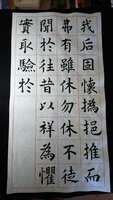 我后固懷撝挹推而
弗有雖休勿休不徒
聞於往昔以祥為懼
實取驗於